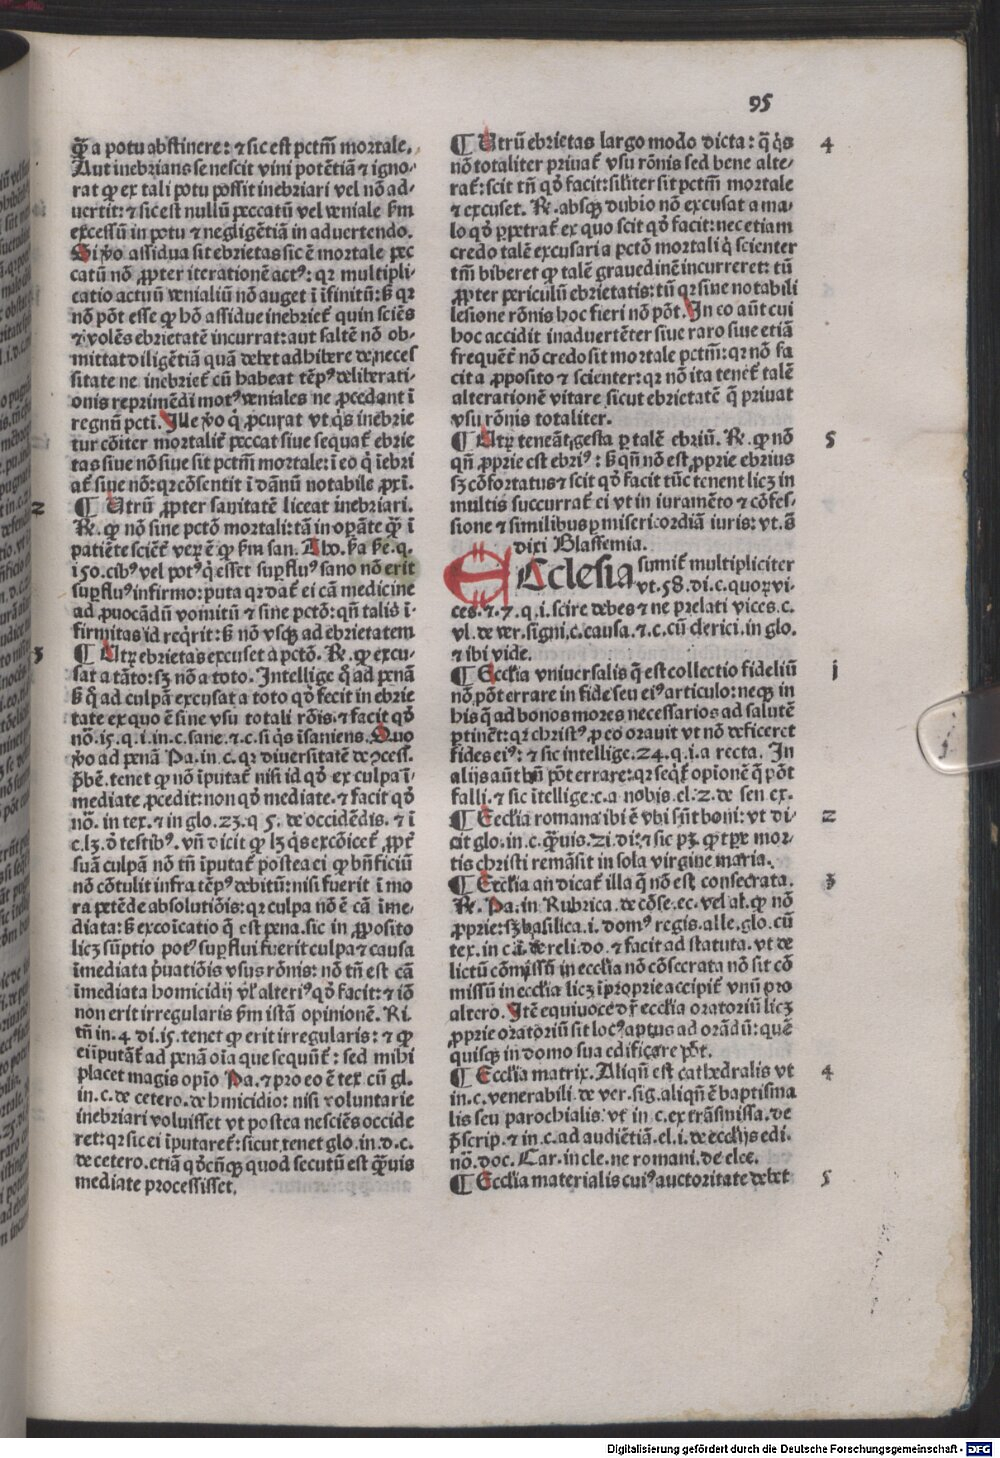 95
q̃ a potu abstinere: ⁊ sic est pctm̃ mortale.
Aut inebrians se nescit vini potẽtiã ⁊ igno-
rat ꝙ ex tali potu possit inebriari vel nõ ad-
uertit: ⁊ sic est nullũ peccatũ vel veniale s̃m
excessũ in potu ⁊ negligẽtiã in aduertendo.
Si ṽo assidua sit ebrietas sic ẽ mortale pec
catũ nõ ꝓpter iterationẽ actꝰ: qꝛ multipli-
catio actuũ venialiũ nõ auget ĩ ĩfinitũ: s̃ qꝛ
nõ põt esse ꝙ hõ assidue inebriet̃ quin sciẽs
⁊ volẽs ebrietatẽ incurrat: aut saltẽ nõ ob-
mittat diligẽtiã quã debet adhibere de neces
sitate ne inebriet̃ cũ habeat tẽpꝰ deliberati-
onis reprimẽdi motꝰ veniales ne ꝓcedant ĩ
regnũ pcti. Ille ṽo q̇ ꝓcurat vt q̇s inebrie
tur cõiter mortalit̃ peccat siue sequat̃ ebrie
tas siue nõ siue sit pctm̃ mortale: ĩ eo q̇ ĩebri
at̃ siue nõ: qꝛ cõsentit ĩ dãnũ notabile ꝓxĩ.
¶ Utrũ ꝓpter sanitatẽ liceat inebriari. 2
R̃. ꝙ nõ sine pctõ mortali: tã in oꝑãte q̃ ĩ
patiẽte sciẽt̃ veꝝ ẽ ꝙ s̃m san. Tho. s̃a s̃e. q.
150. cibꝰ vel potꝰ q̇ esset suꝑfluꝰ sano nõ erit
suꝑfluꝰ infirmo: puta qꝛ dat̃ ei cã medicine
ad ꝓuocãdũ vomitũ ⁊ sine pctõ: qñ talis ĩ-
firmitas id req̇rit: s̃ nõ vsqꝫ ad ebrietatem
¶ Utꝝ ebrietas excuset a pctõ. R̃. ꝙ excu- 3
sat a tãto: sꝫ nõ a toto. Intellige q̃ ad penã
s̃ q̃ ad culpã excusat a toto qḋ fecit in ebrie
tate ex quo ẽ sine vsu totali rõis. ⁊ facit qḋ
nõ. 15. q. i. in c. sane. ⁊ c. si q̇s ĩsaniens. Quo
ṽo ad penã Pa. in c. qꝛ diuersitatẽ de ꝯcess̃.
p̃bẽ. tenet ꝙ nõ ĩputat̃ nisi id qḋ ex culpa ĩ-
mediate ꝓcedit: non qḋ mediate. ⁊ facit qḋ
nõ. in tex. ⁊ in glo. 23. q 5. de occidẽdis. ⁊ ĩ
c. lꝫ. ḋ testibꝰ. vñ dicit ꝙ lꝫ q̇s excõicet̃ ꝓpt̃
suã culpã nõ tñ ĩputat̃ postea ei ꝙ bñficiũ
nõ cõtulit infra tẽpꝰ debitũ: nisi fuerit ĩ mo
ra petẽde absolutiõis: qꝛ culpa nõ ẽ cã ĩme-
diata: s̃ excoĩcatio q̃ est pena. sic in ꝓposito
licꝫ sũptio potꝰ suꝑflui fuerit culpa ⁊ causa
ĩmediata p̃uatiõis vsus rõnis: nõ tñ est cã
ĩmediata homicidij vl̃ alteriꝰ qḋ facit: ⁊ iõ
non erit irregularis s̃m istã opinionẽ. Ri.
tñ in. 4 di. 15. tenet ꝙ erit irregularis: ⁊ ꝙ
ei ĩputãt̃ ad penã oĩa que sequũt̃: sed mihi
placet magis opĩo Pa. ⁊ pro eo ẽ tex cũ gl.
in. c. de cetero. de hmicidio: nisi voluntarie
inebriari voluisset vt postea nesciẽs occide
ret: qꝛ sic ei ĩputaret̃: sicut tenet glo. in. d. c.
de cetero. etiã qḋcũqꝫ quod secutũ est q̃uis
mediate processisset.
¶ Utrũ ebrietas largo modo dicta: q̃ q̇s 4
nõ totaliter priuat̃ vsu rõnis sed bene alte-
rat̃: scit tñ qḋ facit: sil̃iter sit pctm̃ mortale
⁊ excuset. R̃. absqꝫ dubio nõ excusat a ma-
lo qḋ ꝑpetrat̃ ex quo scit qḋ facit: nec etiam
credo talẽ excusari a pctõ mortali q̇ scienter
tm̃ biberet ꝙ talẽ grauedinẽ incurreret: tũ
ꝓpter periculũ ebrietatis: tũ qꝛ sine notabili
lesione rõnis hoc fieri nõ põt. In eo aũt cui
hoc accidit inaduertẽter siue raro siue etiã
frequẽt̃ nõ credo sit mortale pctm̃: qꝛ nõ fa
cit a ꝓposito ⁊ scienter: qꝛ nõ ita tenet̃ talẽ
alterationẽ vitare sicut ebrietatẽ q̃ priuat
vsu rõnis totaliter.
¶ Utꝝ teneãt̃ gesta ꝑ talẽ ebriũ. R̃. ꝙ nõ 5
qñ ꝓprie est ebriꝰ: s̃ qñ nõ est ꝓprie ebrius
sꝫ cõfortatus ⁊ scit qḋ facit tũc tenent licꝫ in
multis succurrat̃ ei vt in iuramẽto ⁊ cõfes-
sione ⁊ similibus ꝑ misericordiã iuris: vt. s̃
dixi Blasfemia.
Ecclesia sumit̃ multipliciter
vt. 58. di. c. quoꝝ vi-
ces. ⁊. 7. q. i. scire debes ⁊ ne prelati vices. c.
vl. de ver. signi. c. causa. ⁊. c. cũ clerici. in glo.
⁊ ibi vide.
¶ Eccl̃ia vniuersalis q̃ est collectio fideliũ j
nõ põt errare in fide seu eiꝰ articulo: neqꝫ in
his q̃ ad bonos mores necessarios ad salutẽ
ꝑtinẽt: qꝛ christꝰ ꝓ eo orauit vt nõ deficeret
fides eiꝰ: ⁊ sic intellige. 24. q. i. a recta. In
alijs aũt bñ põt errare: qꝛ seq̇t̃ opionẽ q̃ põt
falli. ⁊ sic ĩtellige: c. a nobis. el. 2. de sen ex.
¶ Eccl̃ia romana ibi ẽ vbi sũt boni: vt di- 2
cit glo. in. c. q̃uis. 21. di: ⁊ sic pꝫ. ꝙ tꝑe mor-
tis christi remãsit in sola virgine maria.
¶ Eccl̃ia an dicat̃ illa q̃ nõ est consecrata. 3
R̃. Pa. in Rubrica. de cõse. ec. vel al. ꝙ nõ
ꝓprie: sꝫ basilica. i. domꝰ regis. alle. glo. cũ
tex. in c. i. de reli. do. ⁊ facit ad statuta. vt de
lictũ cõmissũ in eccl̃ia nõ cõsecrata nõ sit cõ
missũ in eccl̃ia licꝫ ĩproprie accipit̃ vnũ pro
altero. Itẽ equiuoce dr̃ eccl̃ia oratoriũ licꝫ
ꝓprie oratoriũ sit locꝰ aptus ad orãdũ: quẽ
quisqꝫ in domo sua edificare põt.
¶ Eccl̃ia matrix. Aliqñ est cathedralis vt 4
in. c. venerabili. de ver. sig. aliqñ ẽ baptisma
lis seu parochialis: vt̃ in. c. ex trãsmissa. de
p̃scrip. ⁊ in. c. ad audiẽtiã. el. i. de eccl̃ijs edi.
nõ. doc. Car. in cle. ne romani. de elce.
¶ Eccl̃ia materialis cuiꝰ auctoritate debet 5
Digitalisierung gefördert durch die Deutsche Forschungsgemeinschaft - DFG